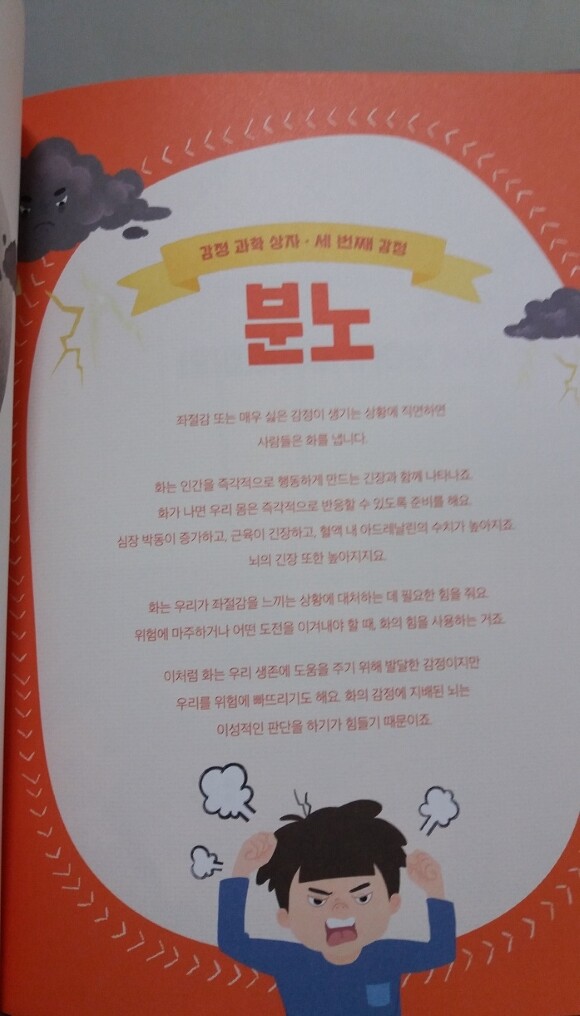 감정 과학 상자 · 세 번째 감정
분노
좌절감 또는 매우 싫은 감정이 생기는 상황에 직면하면
사람들은 화를 냅니다.
화는 인간을 즉각적으로 행동하게 만드는 긴장과 함께 나타나죠.
화가 나면 우리 몸은 즉각적으로 반응할 수 있도록 준비를 해요.
심장 박동이 증가하고, 근육이 긴장하고, 혈액 내 아드레날린의 수치가 높아지죠.
뇌의 긴장 또한 높아지지요.
화는 우리가 좌절감을 느끼는 상황에 대처하는 데 필요한 힘을 줘요.
위험에 마주하거나 어떤 도전을 이겨내야 할 때, 화의 힘을 사용하는 거죠.
이처럼 화는 우리 생존에 도움을 주기 위해 발달한 감정이지만
우리를 위험에 빠뜨리기도 해요. 화의 감정에 지배된 뇌는
이성적인 판단을 하기가 힘들기 때문이죠.